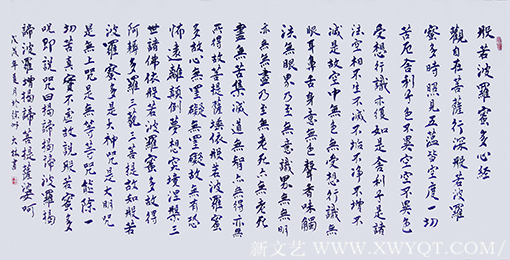 般若波羅蜜多心經
觀自在菩薩行深般若波羅
蜜多時照見五蘊皆空度一切
苦厄舍利子色不異空空不異色
受想行識亦復如是舍利子是諸
法空相不生不滅不垢不淨不增不
減是故空中無色無受想行識無
眼耳鼻舌身意無色聲香味觸
法無眼界乃至無意識界無無明
亦無無盡乃至無老死亦無老死
盡無苦集滅道無智亦無得亦無
所得故菩提薩埵依般若波羅蜜
多故心無罣礙無罣礙故無有恐
怖遠離顛倒夢想究竟涅槃三
世諸佛依般若波羅蜜多故得
阿耨多羅三藐三菩提故知般若
波羅蜜多是大神咒是大明咒
是無上咒是無等等咒能除一
切苦真實不虛故說般若蜜多
咒即說咒曰揭諦揭諦波羅揭
諦波羅增揭諦菩提薩婆訶
戊戌年夏月於徐州
新文艺 WWW.XWYQT.COM